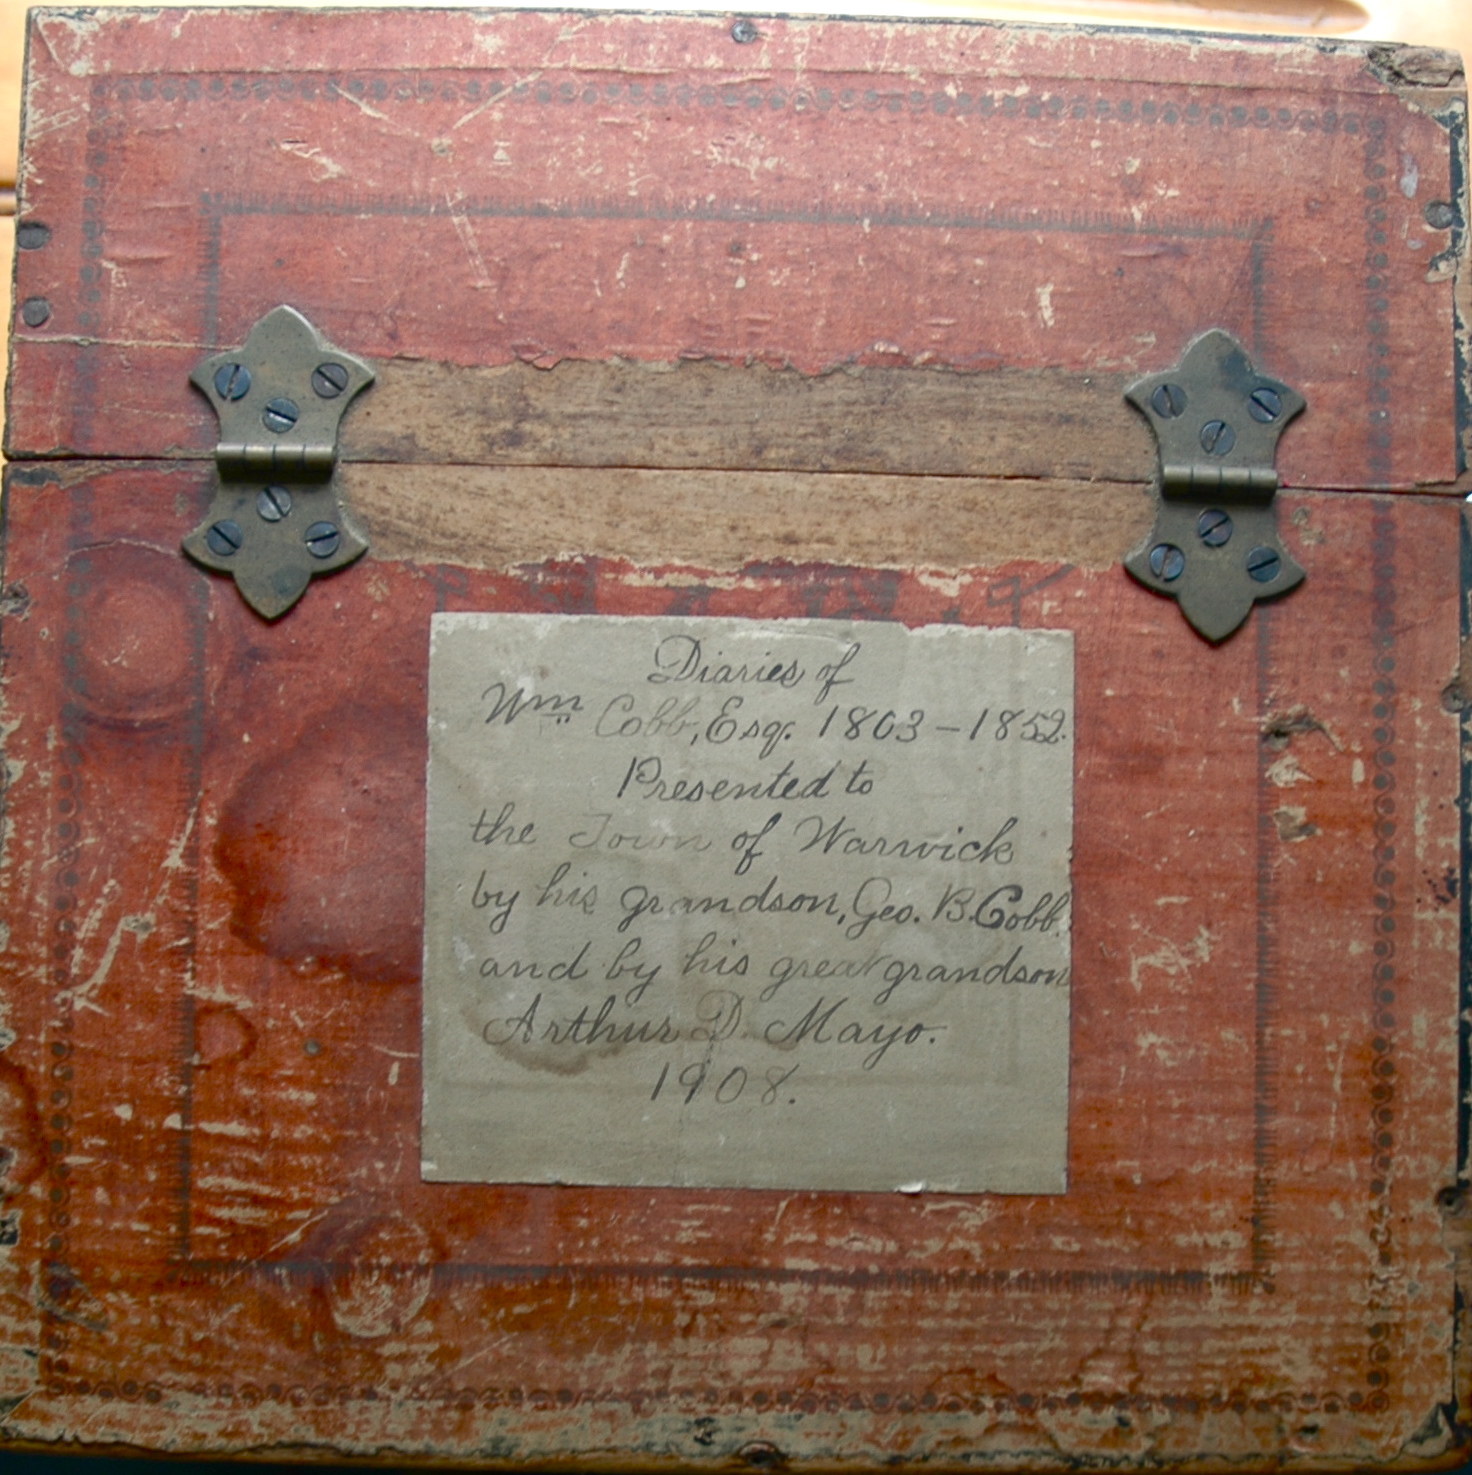 Diaries of
Wm Cobb, Esq. 1803 – 1852.
Presented to
the Town of Warwick
by his grandson, Geo. B. Cobb.
and by his great grandson
Arthur D. Mayo.
1908.